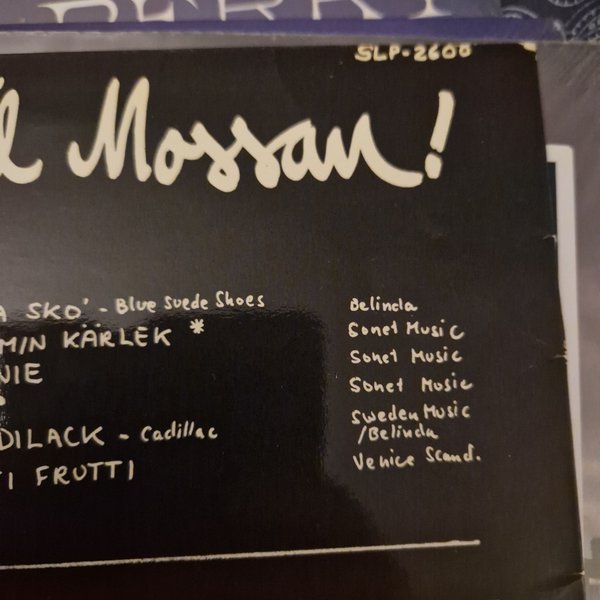 PERRY
SLP-2600
l Mossan!
A SKO' - Blue Suede Shoes Belinda
MIN KÄRLEK * Sonet Music
NIE Sonet Music
Sonet Music
DILACK - Cadillac Sweden Music
/Belinda
TI FRUTTI Venice Scand.